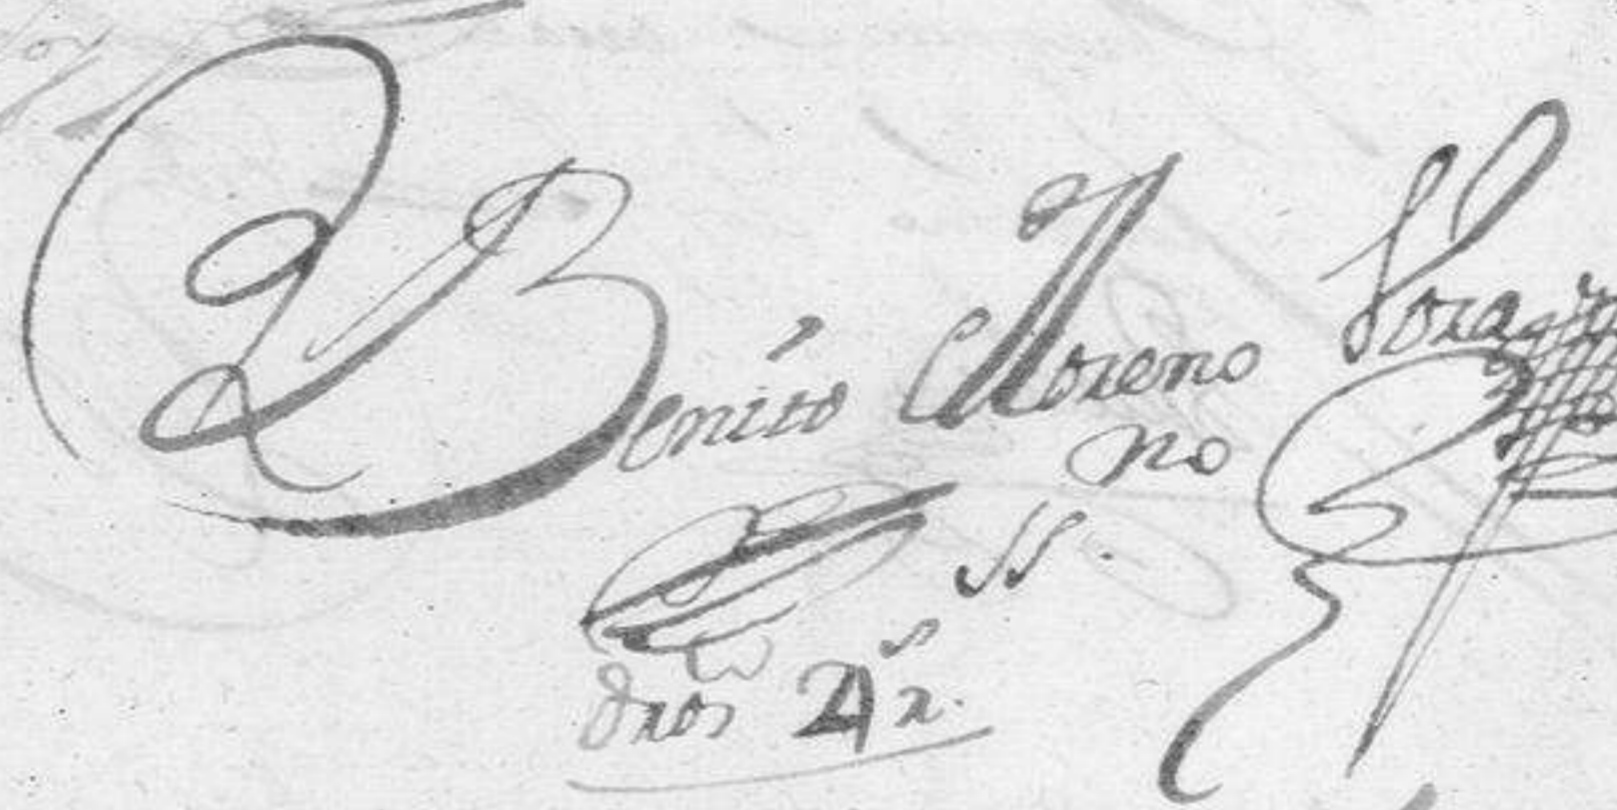 Benito Moreno
no
ss.
dros 24 rs.